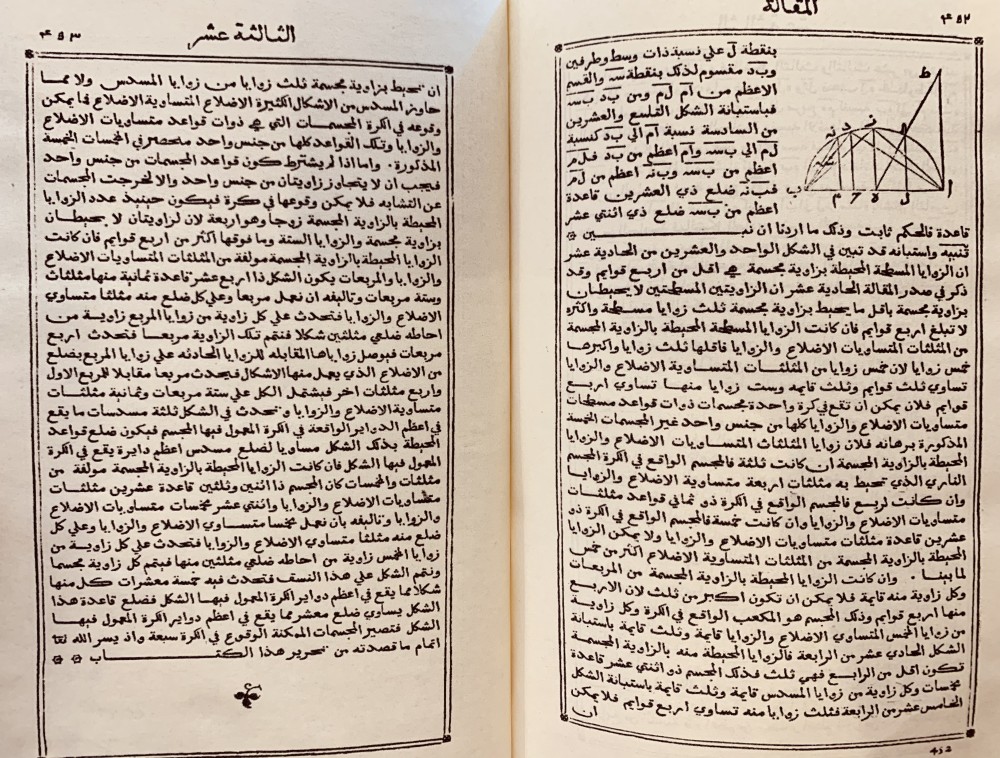 ٤٥٢
المقالة
بنقطة ل علي نسبة ذات وسط وطرفين
وب د مقسوم لذلك بنقطة سه والقسم
الاعظم من ا م ل م ومن ب د ب سه
فباستبانة الشكل التاسع والعشرين
من السادسة نسبة ا م الي ب د كنسبة
ل م الي ب سه وا م اعظم من ب د فـ ل م
اعظم من ب سه وب نه اعظم من ل م
فـ ب نه ضلع ذي العشرين قاعدة
اعظم من ب سه ضلع ذي اثنتي عشر
قاعدة فالحكم ثابت وذلك ما اردنا ان نبين
تنبيه واستبانه قد تبين في الشكل الواحد والعشرين من الحادية عشر
ان الزوايا المسطحة المحيطة بزاوية مجسمة هي اقل من اربع قوايم وقد
ذكر في صدر المقالة الحادية عشر ان الزاويتين المسطحتين لا يحيطان
بزاوية مجسمة باقل ما يحيط بزاوية مجسمة ثلث زوايا مسطحة واكثره
لا تبلغ اربع قوايم فان كانت الزوايا المسطحة المحيطة بالزاوية المجسمة
من المثلثات المتساويات الاضلاع والزوايا فاقلها ثلث زوايا واكبرها
خمس زوايا لان خمس زوايا من المثلثات المتساوية الاضلاع والزوايا
تساوي ثلث قوايم وثلث قايمه وست زوايا منها تساوي اربع
قوايم فلان يمكن ان تقع في كرة واحدة مجسمات ذوات قواعد مسطحات
متساويات الاضلاع والزوايا كلها من جنس واحد غير المجسمات الخمسة
المذكورة برهانه فلان زوايا المثلثات المتساويات الاضلاع والزوايا
المحيطة بالزاوية المجسمة ان كانت ثلثة فالمجسم الواقع في الكرة المجسم
الناري الذي تحيط به مثلثات اربعة متساوية الاضلاع والزوايا
وان كانت اربع فالمجسم الواقع في الكرة ذو ثماني قواعد مثلثات
متساويات الاضلاع والزوايا وان كانت خمسة فالمجسم الواقع في الكرة ذو
عشرين قاعدة مثلثات متساويات الاضلاع والزوايا ولا يمكن الزوايا
المحيطة بالزاوية المجسمة من المثلثات المتساوية الاضلاع اكثر من خمس
لما بينا . وان كانت الزوايا المحيطة بالزاوية المجسمة من المربعات
وكل زاوية منه قايمة فلا يمكن ان تكون اكبر من ثلث لان الاربع
منها اربع قوايم وذلك المجسم هو المكعب الواقع في الكرة وكل زاوية
من زوايا الخمس المتساوي الاضلاع والزوايا قايمة وثلث قايمة باستبانة
الشكل الحادي عشر من الرابعة فالزوايا المحيطة منه بالزاوية المجسمة
تكون اقل من الرابع فهي ثلث فذلك المجسم ذو اثنتي عشر قاعدة
مخمسات وكل زاوية من زوايا المسدس قايمة وثلث قايمة باستبانة الشكل
الخامس عشر من الرابعة فثلث زوايا منه تساوي اربع قوايم فلا يمكن
ان
452
٤٥٣
الثالثة عشر
ان يحيط بزاوية مجسمة ثلث زوايا من زوايا المسدس ولا مما
جاوز المسدس من الاشكال الكثيرة الاضلاع المتساوية الاضلاع فما يمكن
وقوعه في الكرة المجسمات التي هي ذوات قواعد متساويات الاضلاع
والزوايا وتلك القواعد كلها من جنس واحد منحصر في المجسمات الخمسة
المذكورة . واما اذا لم يشترط كون قواعد المجسمات من جنس واحد
فيجب ان لا يتجاوز زاويتان من جنس واحد والا لخرجت المجسمات
عن التشابه فلا يمكن وقوعها في كرة فيكون حينيذ عدد الزوايا
المحيطة بالزاوية المجسمة زوجا وهو اربعة لان لزاويتان لا يحيطان
بزاوية مجسمة والزوايا الستة وما فوقها اكثر من اربع قوايم فان كانت
الزوايا المحيطة بالزاوية المجسمة مولفة من المثلثات المتساويات الاضلاع
والزوايا والمربعات يكون الشكل ذا اربع عشر قاعدة ثمانية منها مثلثات
وستة مربعات وتاليفه ان نعمل مربعا وعلي كل ضلع منه مثلثا متساوي
الاضلاع والزوايا فتحدث علي كل زاوية من زوايا المربع زاوية من
احاطه ضلعي مثلثين شكلا فنتمم تلك الزاوية مربعا فتحدث اربع
مربعات فيوصل زواياها المقابله للزوايا الحادثه علي زوايا المربع بضلع
من الاضلاع الذي يعمل منها الاشكال فيحدث مربعا مقابلا للمربع الاول
واربع مثلثات اخر فيشتمل الكل علي ستة مربعات وثمانية مثلثات
متساوية الاضلاع والزوايا وتحدث في الشكل ثلثة مسدسات ما يقع
في اعظم الدواير الواقعة في الكرة المعمول فيها المجسم فيكون ضلع قواعد
المحيطة بذلك الشكل مساويا لضلع مسدس اعظم دايرة يقع في الكرة
المعمول فيها الشكل فان كانت الزوايا المحيطة بالزاوية المجسمة مولفة من
مثلثات والمخمسات كان المجسم ذا اثنين وثلثين قاعدة عشرين مثلثات
متساويات الاضلاع والزوايا واثنتي عشر مخمسات متساويات الاضلاع
والزوايا وتاليفه بان نعمل مخمسا متساوي الاضلاع والزوايا وعلي كل
ضلع منه مثلثا متساوي الاضلاع والزوايا فتحدث علي كل زاوية من
زوايا المخمس زاوية من احاطه ضلعي مثلثين منها فيتمم كل زاوية مجسما
ونتمم الشكل علي هذا النسق فتحدث فيه خمسة معشرات كل منها
شكلا مما يقع في اعظم دواير الكرة المعمول فيها الشكل فضلع قاعدة هذا
الشكل يساوي ضلع معشر مما يقع في اعظم دواير الكرة المعمول فيها
الشكل فتصير المجسمات الممكنة الوقوع في الكرة سبعة واذ يسر الله لنا
اتمام ما قصدته من تحرير هذا الكتاب